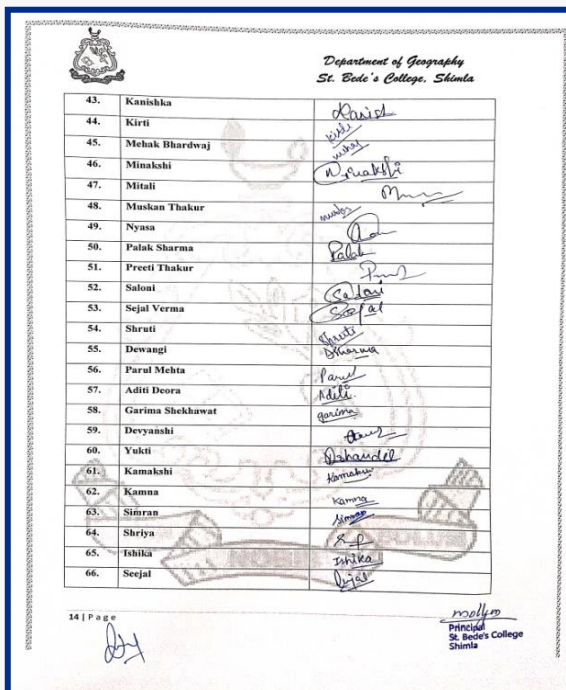 Department of Geography
St. Bede's College, Shimla
43. Kanishka
44. Kirti Kirti
45. Mehak Bhardwaj
46. Minakshi Minakshi
47. Mitali
48. Muskan Thakur
49. Nyasa
50. Palak Sharma Palak
51. Preeti Thakur
52. Saloni Saloni
53. Sejal Verma Sejal
54. Shruti Shruti
55. Dewangi DSharma
56. Parul Mehta Parul
57. Aditi Deora Aditi
58. Garima Shekhawat garima
59. Devyanshi
60. Yukti
61. Kamakshi Kamakshi
62. Kamna Kamna
63. Simran Simran
64. Shriya
65. Ishika Ishika
66. Seejal
14 | Page
Principal
St. Bede's College
Shimla